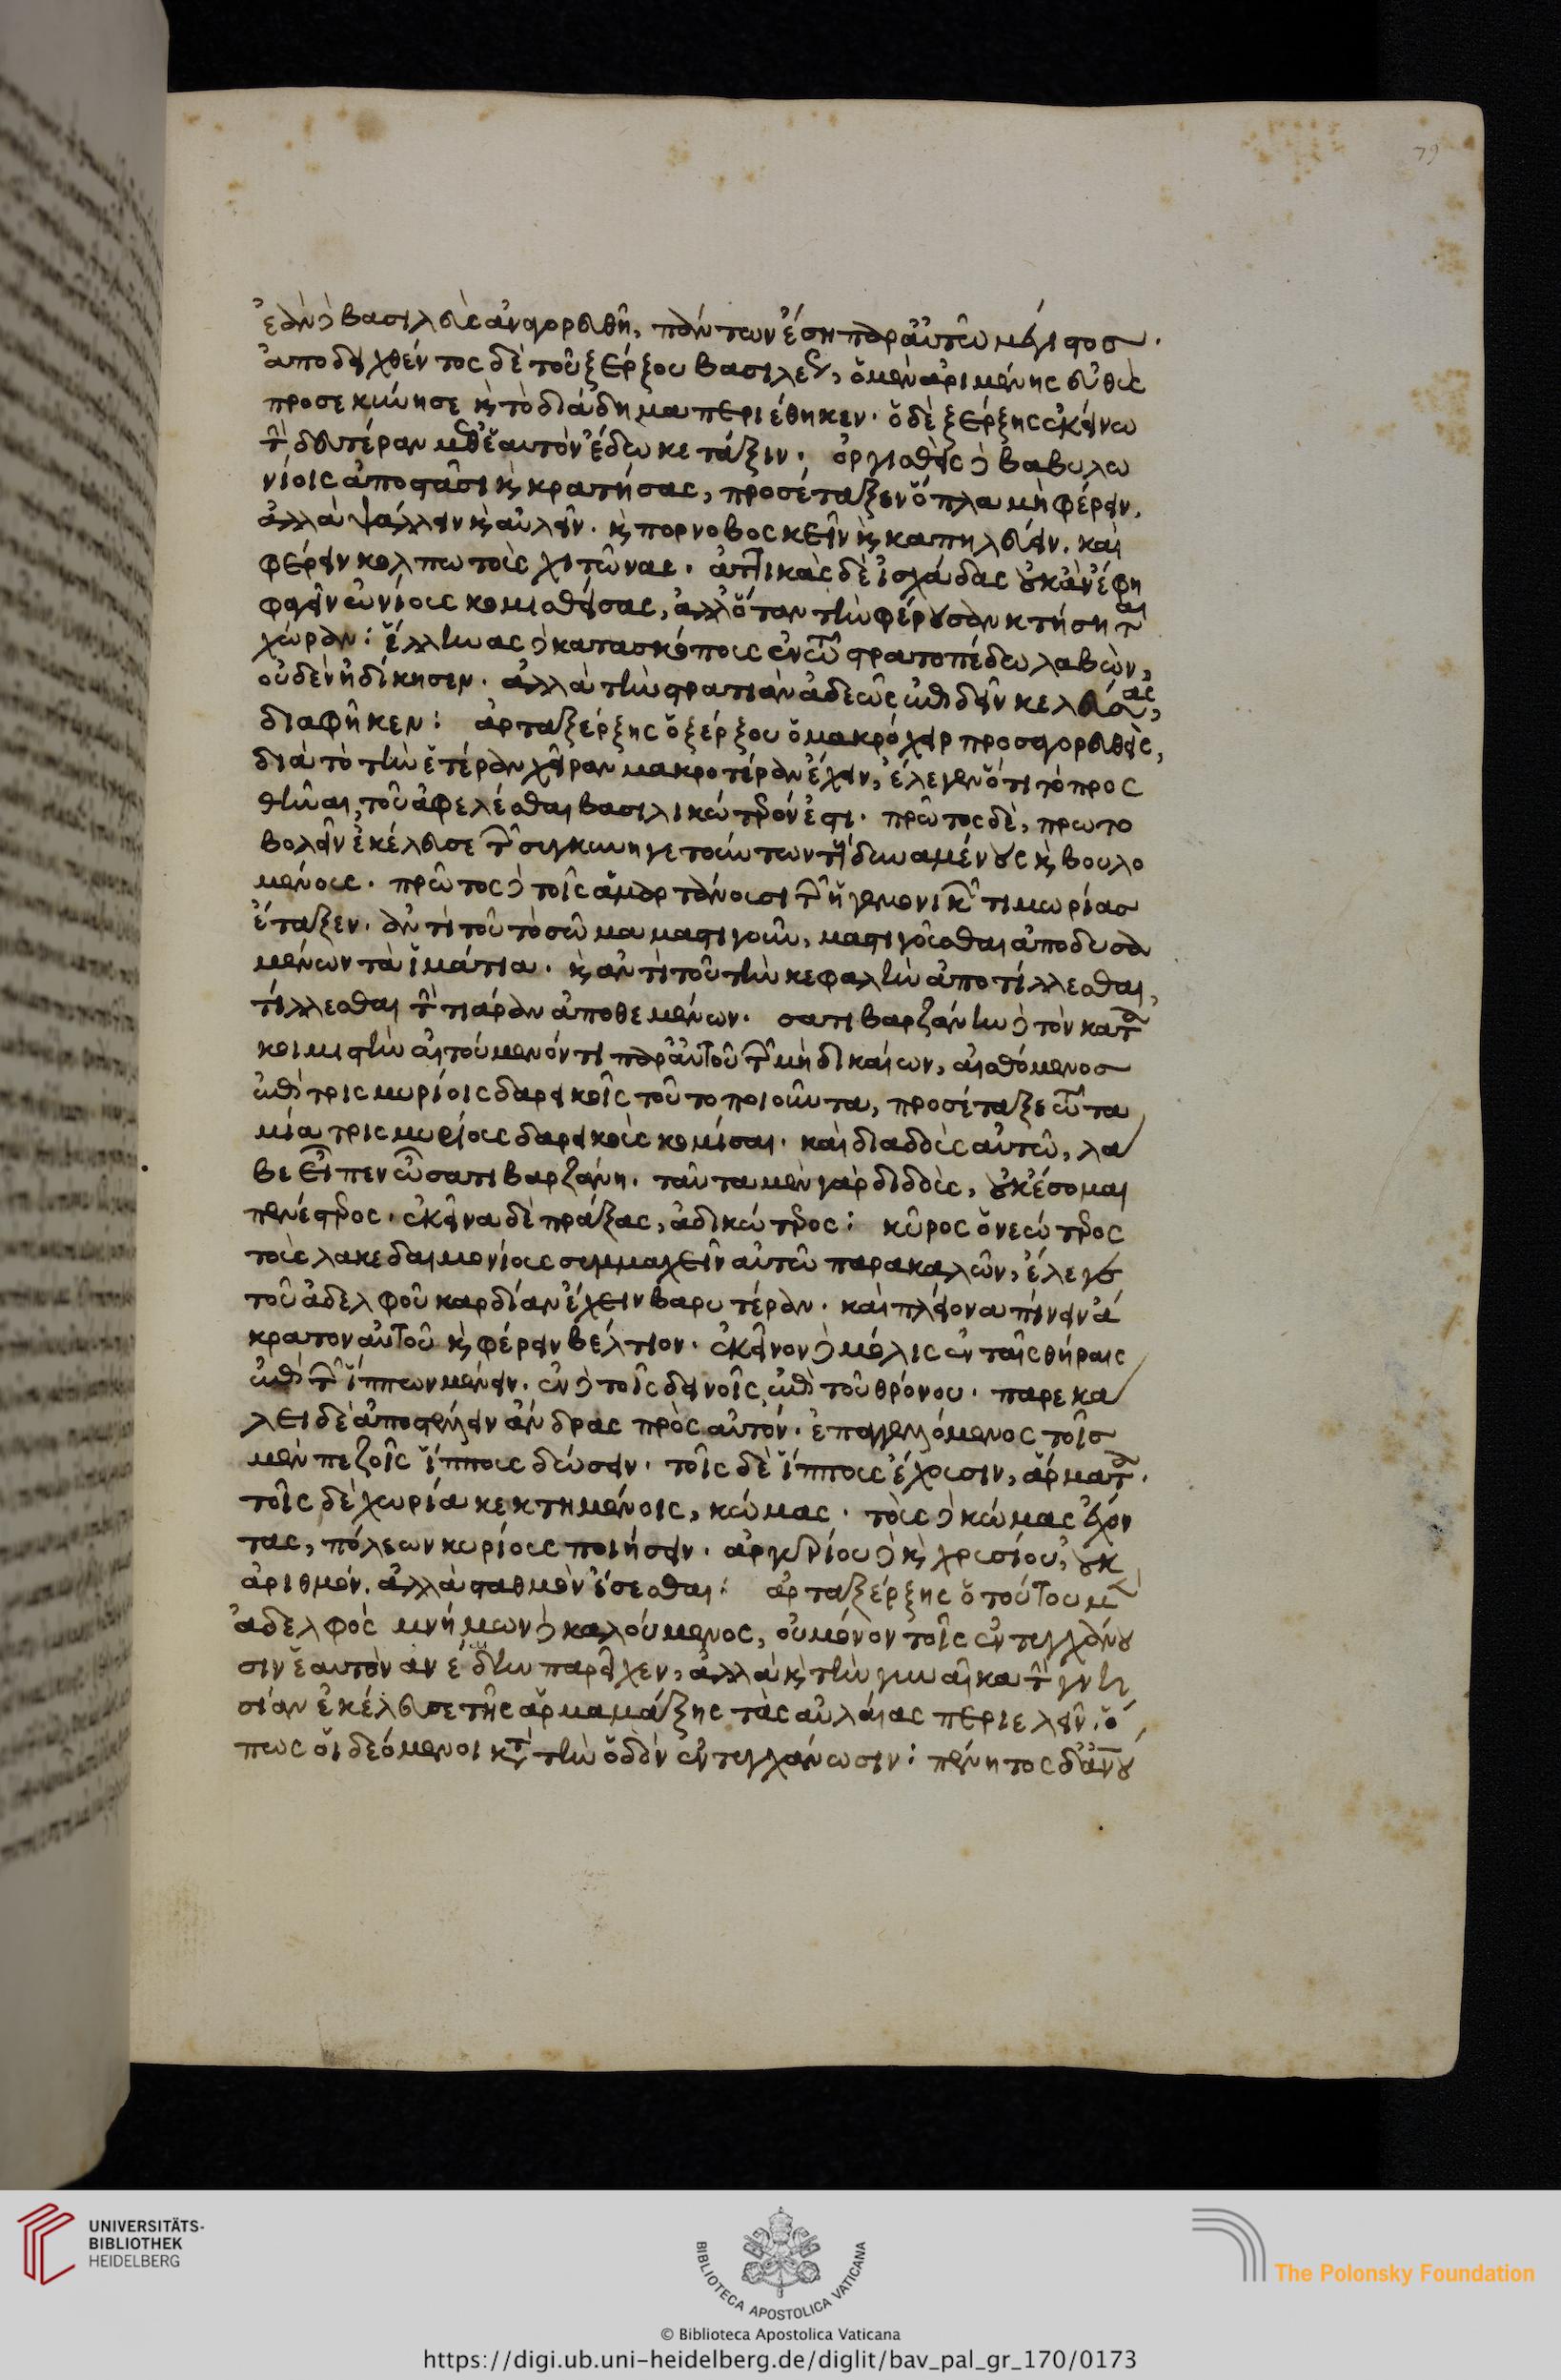 ἐὰν δὲ βασιλεὺς ἀναγορευθῆ, πάντων ἔση παρ' αὐτῶ μέγιστος.
ἀποδειχθέντος δὲ τοῦ ξέρξου βασιλέως, ὁ μὲν ἀριμένης εὐθὺς
προσεκύνησε καὶ τὸ διάδημα περιέθηκεν. ὁ δὲ ξέρξης ἐκείνω
τὴν δευτέραν μεθ' ἑαυτὸν ἔδωκε τάξιν. ὀργισθεὶς δὲ βαβυλω
νίοις ἀποστᾶσι καὶ κρατήσας, προσέταξεν ὅπλα μὴ φέρειν,
ἀλλὰ ψάλλειν καὶ αὐλεῖν. καὶ πορνοβοσκεῖν καὶ καπηλεύειν. καὶ
φέρειν κολπωτοὺς χιτῶνας. ἀττικὰς δὲ ἰσχάδας οὐκ ἂν ἔφη
φαγεῖν ὠνίους κομισθείσας, ἀλλ' ὅταν τὴν φέρουσαν κτήσηται
χώραν: ἕλληνας δὲ κατασκόπους ἐν τῶ στρατοπέδω λαβὼν,
οὐδὲν ἠδίκησεν. ἀλλὰ τὴν στρατιὰν ἀδεῶς ἐπιδεῖν κελεύσας,
διαφῆκεν: ἀρταξέρξης ὁ ξέρξου ὁ μακρόχειρ προσαγορευθεὶς,
διὰ τὸ τὴν ἑτέραν χεῖραν μακροτέραν ἔχειν, ἔλεγεν ὅτι τὸ προσ
θεῖναι, τοῦ ἀφελέσθαι βασιλικώτερόν ἐστι. πρῶτος δὲ, πρωτο
βολεῖν ἐκέλευσε τῶν συγκυνηγετούντων τοὺς δυναμένους καὶ βουλο
μένους. πρῶτος δὲ τοῖς ἁμαρτάνουσι τῶν ἡγεμονικῶν τιμωρίας
ἔταξεν. ἀντὶ τοῦ τὸ σῶμα μαστιγοῦν, μαστιγοῦσθαι ἀποδυσα
μένων τὰ ἱμάτια. καὶ ἀντὶ τοῦ τὴν κεφαλὴν ἀποτίλλεσθαι,
τίλλεσθαι τὴν τιάραν ἀποθεμένων. σατιβαρζάνην δὲ τὸν κατα
κοιμιστὴν αἰτούμενόν τι παρ' αὐτοῦ τῶν μὴ δικαίων, αἰσθόμενος
ἐπὶ τρισμυρίοις δαρεικοῖς τοῦτο ποιοῦντα, προσέταξε τῶ τα
μία τρισμυρίους δαρεικοὺς κομίσαι. καὶ διαδοὺς αὐτῶ, λα
βε εἶπεν ὦ σατιβαρζάνη. ταῦτα μὲν γὰρ διδοὺς, οὐκ ἔσομαι
πενέστερος. ἐκεῖνα δὲ πράξας, ἀδικώτερος: κῦρος ὁ νεώτερος
τοὺς λακεδαιμονίους συμμαχεῖν αὐτῶ παρακαλῶν, ἔλεγε
τοῦ ἀδελφοῦ καρδίαν ἔχειν βαρυτέραν. καὶ πλείονα πίνειν ἄ
κρατον αὐτοῦ καὶ φέρειν βέλτιον. ἐκεῖνον δὲ μόλις ἐν ταῖς θήραις
ἐπὶ τῶν ἵππων μένειν. ἐν δὲ τοῖς δεινοῖς ἐπὶ τοῦ θρόνου. παρεκα
λει δὲ ἀποστέλλειν ἄνδρας πρὸς αὐτόν. ἐπαγγελλόμενος τοῖς
μὲν πεζοῖς ἵππους δώσειν. τοῖς δὲ ἵππους ἔχουσιν, ἅρματα.
τοῖς δὲ χωρία κεκτημένοις, κώμας. τοὺς δὲ κώμας ἔχον
τας, πόλεων κυρίους ποιήσειν. ἀργυρίου δὲ καὶ χρυσίου, οὐκ
ἀριθμὸν. ἀλλὰ σταθμὸν ἔσεσθαι: ἀρταξέρξης ὁ τούτου μὲν
ἀδελφὸς μνήμων δὲ καλούμενος, οὐ μόνον τοῖς ἐντυγχάνου
σιν ἑαυτὸν ἀνέδην παρεῖχεν, ἀλλὰ καὶ τὴν γυναῖκα τὴν γνη
σίαν ἐκέλευσε τῆς ἁρμαμάξης τὰς αὐλαίας περιελεῖν. ὅ
πως οἱ δεόμενοι κατὰ τὴν ὁδὸν ἐντυγχάνωσιν: πένητος δ' ἀνθρώπου
79
UNIVERSITÄTS-
BIBLIOTHEK
HEIDELBERG
BIBLIOTECA APOSTOLICA VATICANA
The Polonsky Foundation
© Biblioteca Apostolica Vaticana
https://digi.ub.uni-heidelberg.de/diglit/bav_pal_gr_170/0173